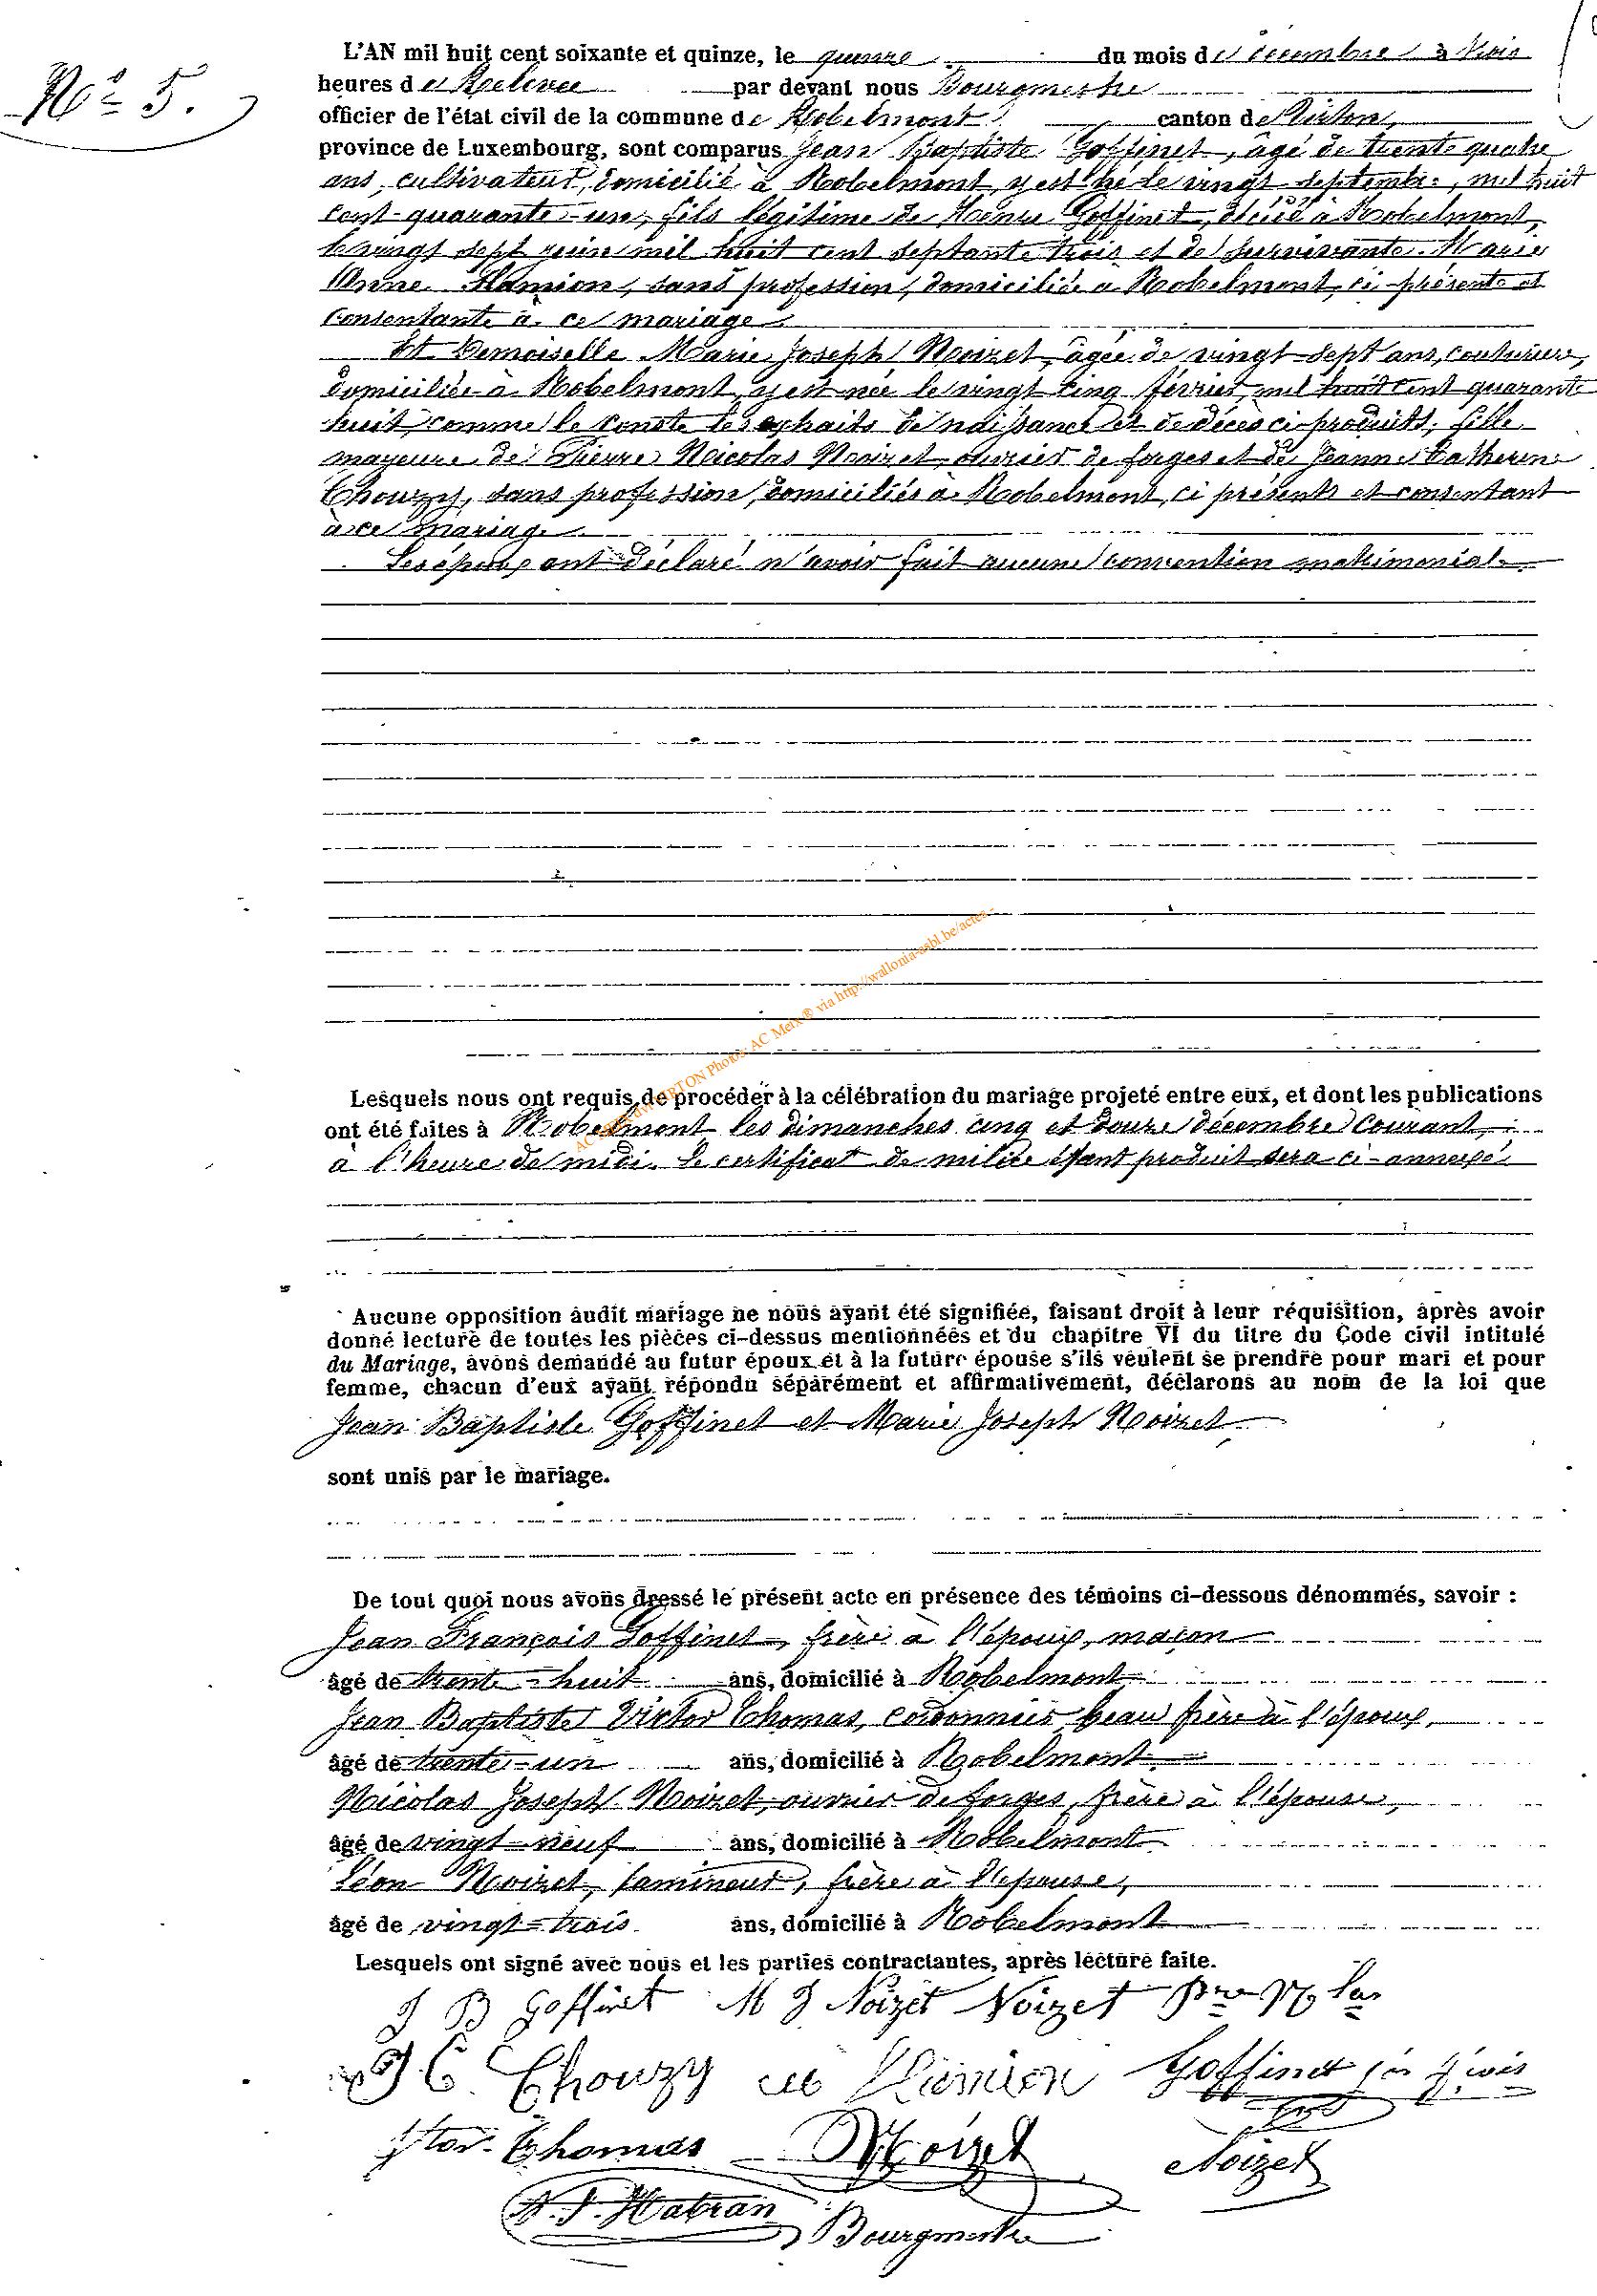 N° 5.
L'AN mil huit cent soixante et quinze, le quinze du mois de décembre à trois
heures de Relevée par devant nous Bourgmestre
officier de l'état civil de la commune de Robelmont canton de Virton,
province de Luxembourg, sont comparus Jean Baptiste Goffinet, âgé de trente quatre
ans, cultivateur, domicilié à Robelmont, y est né le vingt septembre, mil huit
cent quarante-un, fils légitime de Goffinet, à Robelmont,
le vingt sept juin mil huit cent septante trois et de survivante Marie
Anne sans profession, domiciliée à Robelmont, ci-présente et
consentante à ce mariage
Et Demoiselle Marie Joseph Noizet, âgée de vingt-sept ans, couturière,
domiciliée à Robelmont, y est née le vingt cinq février, mil huit cent quarante
huit, comme le conste les extraits de naissance et de décès ci-produits, fille
mayeure de Pierre Nicolas Noizet, ouvrier de forges et de Jeanne Catherine
Chouzy, sans profession, domiciliés à Robelmont, ci présents et consentant
à ce mariage.
Les époux, ont déclaré n'avoir fait aucune convention matrimoniale.
Lesquels nous ont requis de procéder à la célébration du mariage projeté entre eux, et dont les publications
ont été faites à Robelmont les dimanches cinq et douze décembre courant,
à l'heure de midi. Le certificat de milice étant produit sera ci-annexé.
Aucune opposition audit mariage ne nous ayant été signifiée, faisant droit à leur réquisition, après avoir
donné lecture de toutes les pièces ci-dessus mentionnées et du chapitre VI du titre du Code civil intitulé
du Mariage, avons demandé au futur époux et à la future épouse s'ils veulent se prendre pour mari et pour
femme, chacun d'eux ayant répondu séparément et affirmativement, déclarons au nom de la loi que
Jean Baptiste Goffinet et Marie Joseph Noizet
sont unis par le mariage.
De tout quoi nous avons dressé le présent acte en présence des témoins ci-dessous dénommés, savoir :
Jean François Goffinet, frère à l'époux, maçon
âgé de trente-huit ans, domicilié à Robelmont
Jean Baptiste Victor Thomas, cordonnier beau frère à l'époux,
âgé de trente-un ans, domicilié à Robelmont
Nicolas Joseph Noizet, ouvrier de forges, frère à l'épouse,
âgé de vingt-neuf ans, domicilié à Robelmont
Léon Noizet, lamineur, frère à l'épouse,
âgé de vingt-trois ans, domicilié à Robelmont
Lesquels ont signé avec nous et les parties contractantes, après lecture faite.
J B Goffinet M J Noizet Noizet
J C Chouzy Goffinet
Thomas Noizet Noizet
Bourgmestre